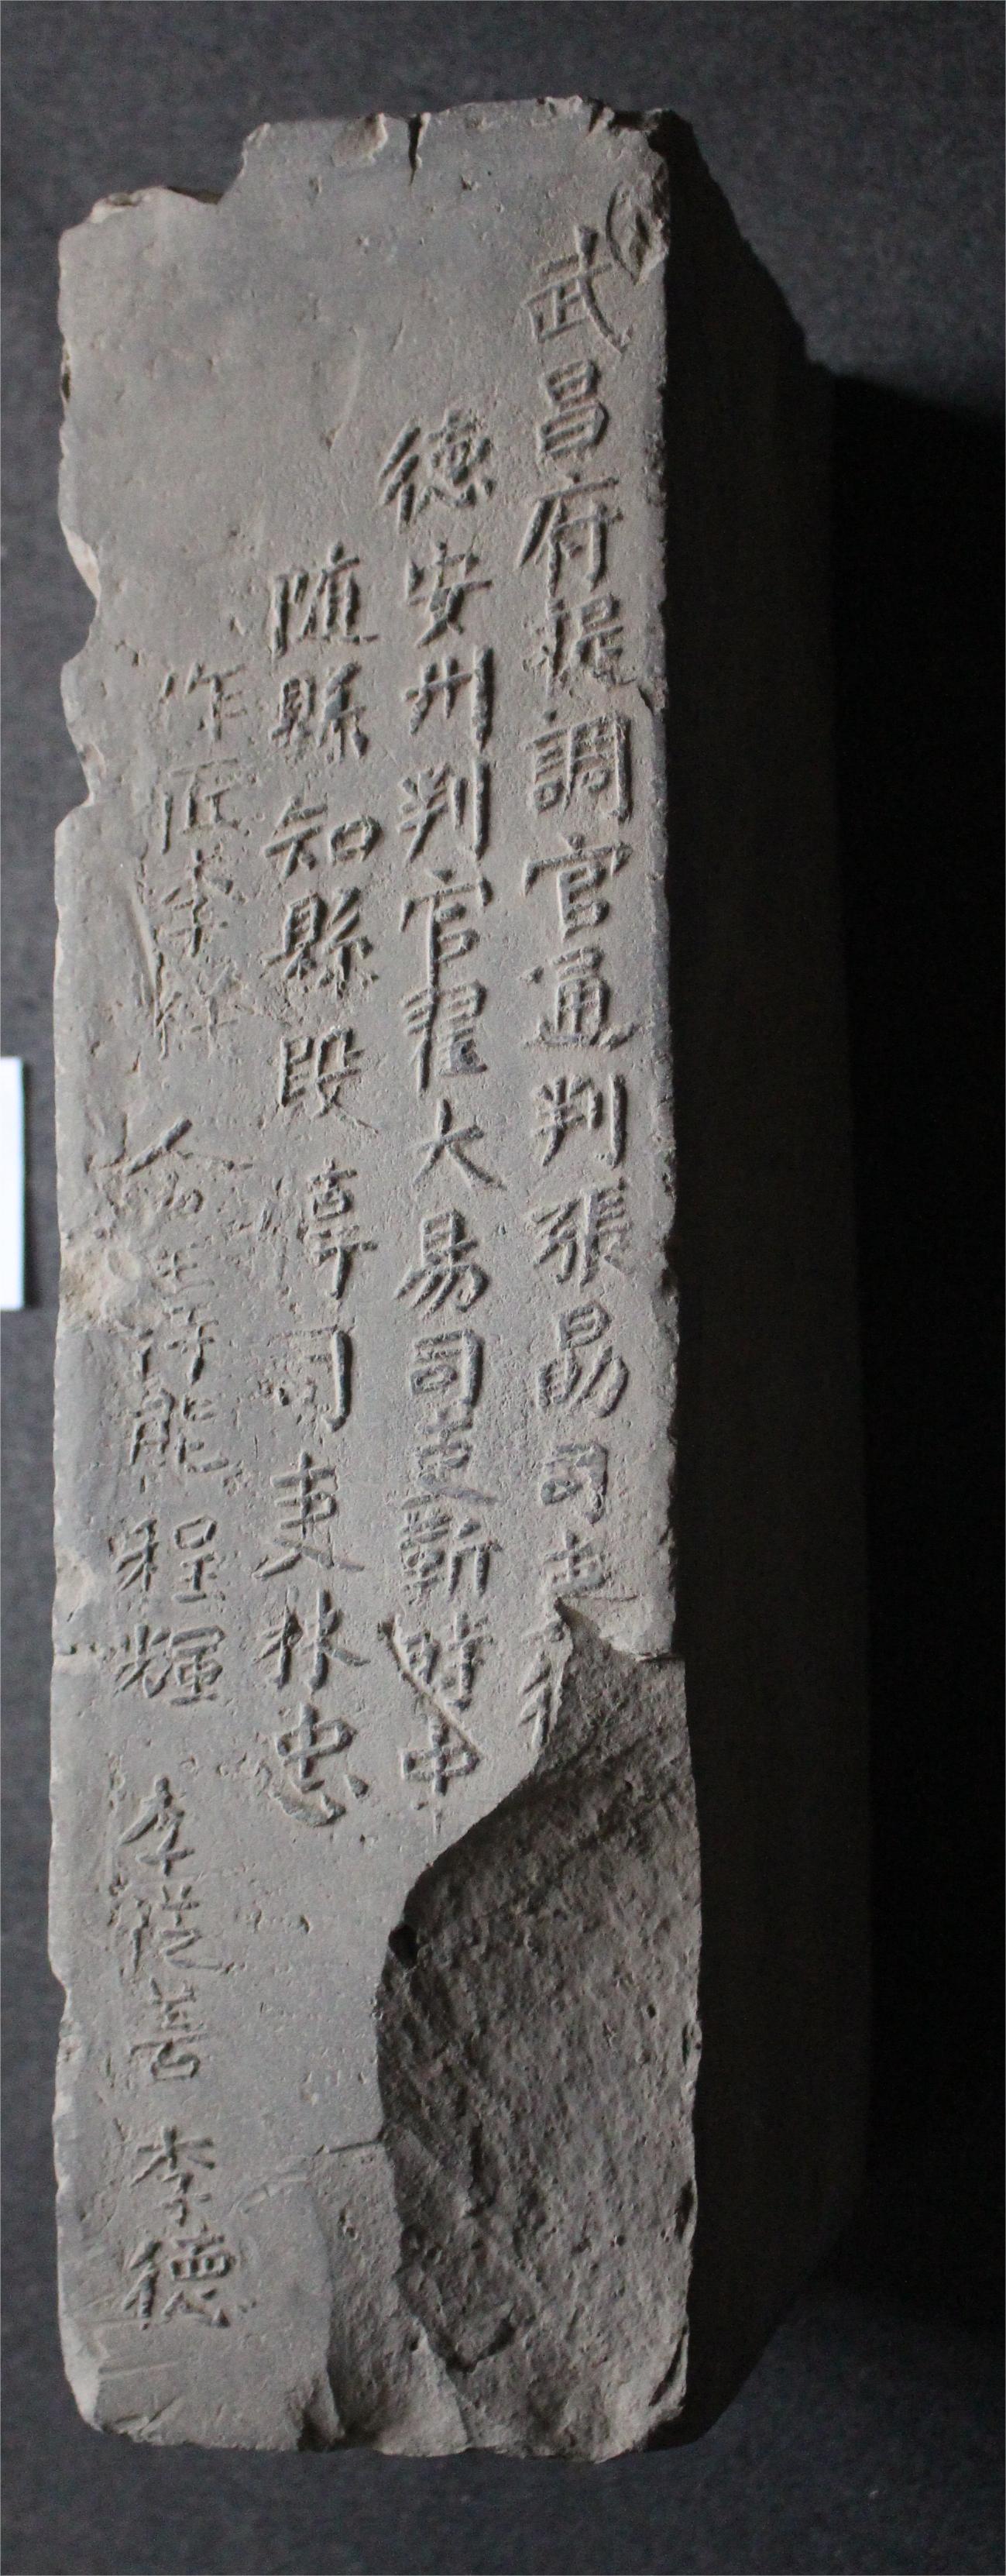 武昌府提調官通判張勗司吏
德安州判官瞿大易司吏斯時中
隨縣知縣段惇司吏林忠
作匠李 許能 程輝 李從善 李德